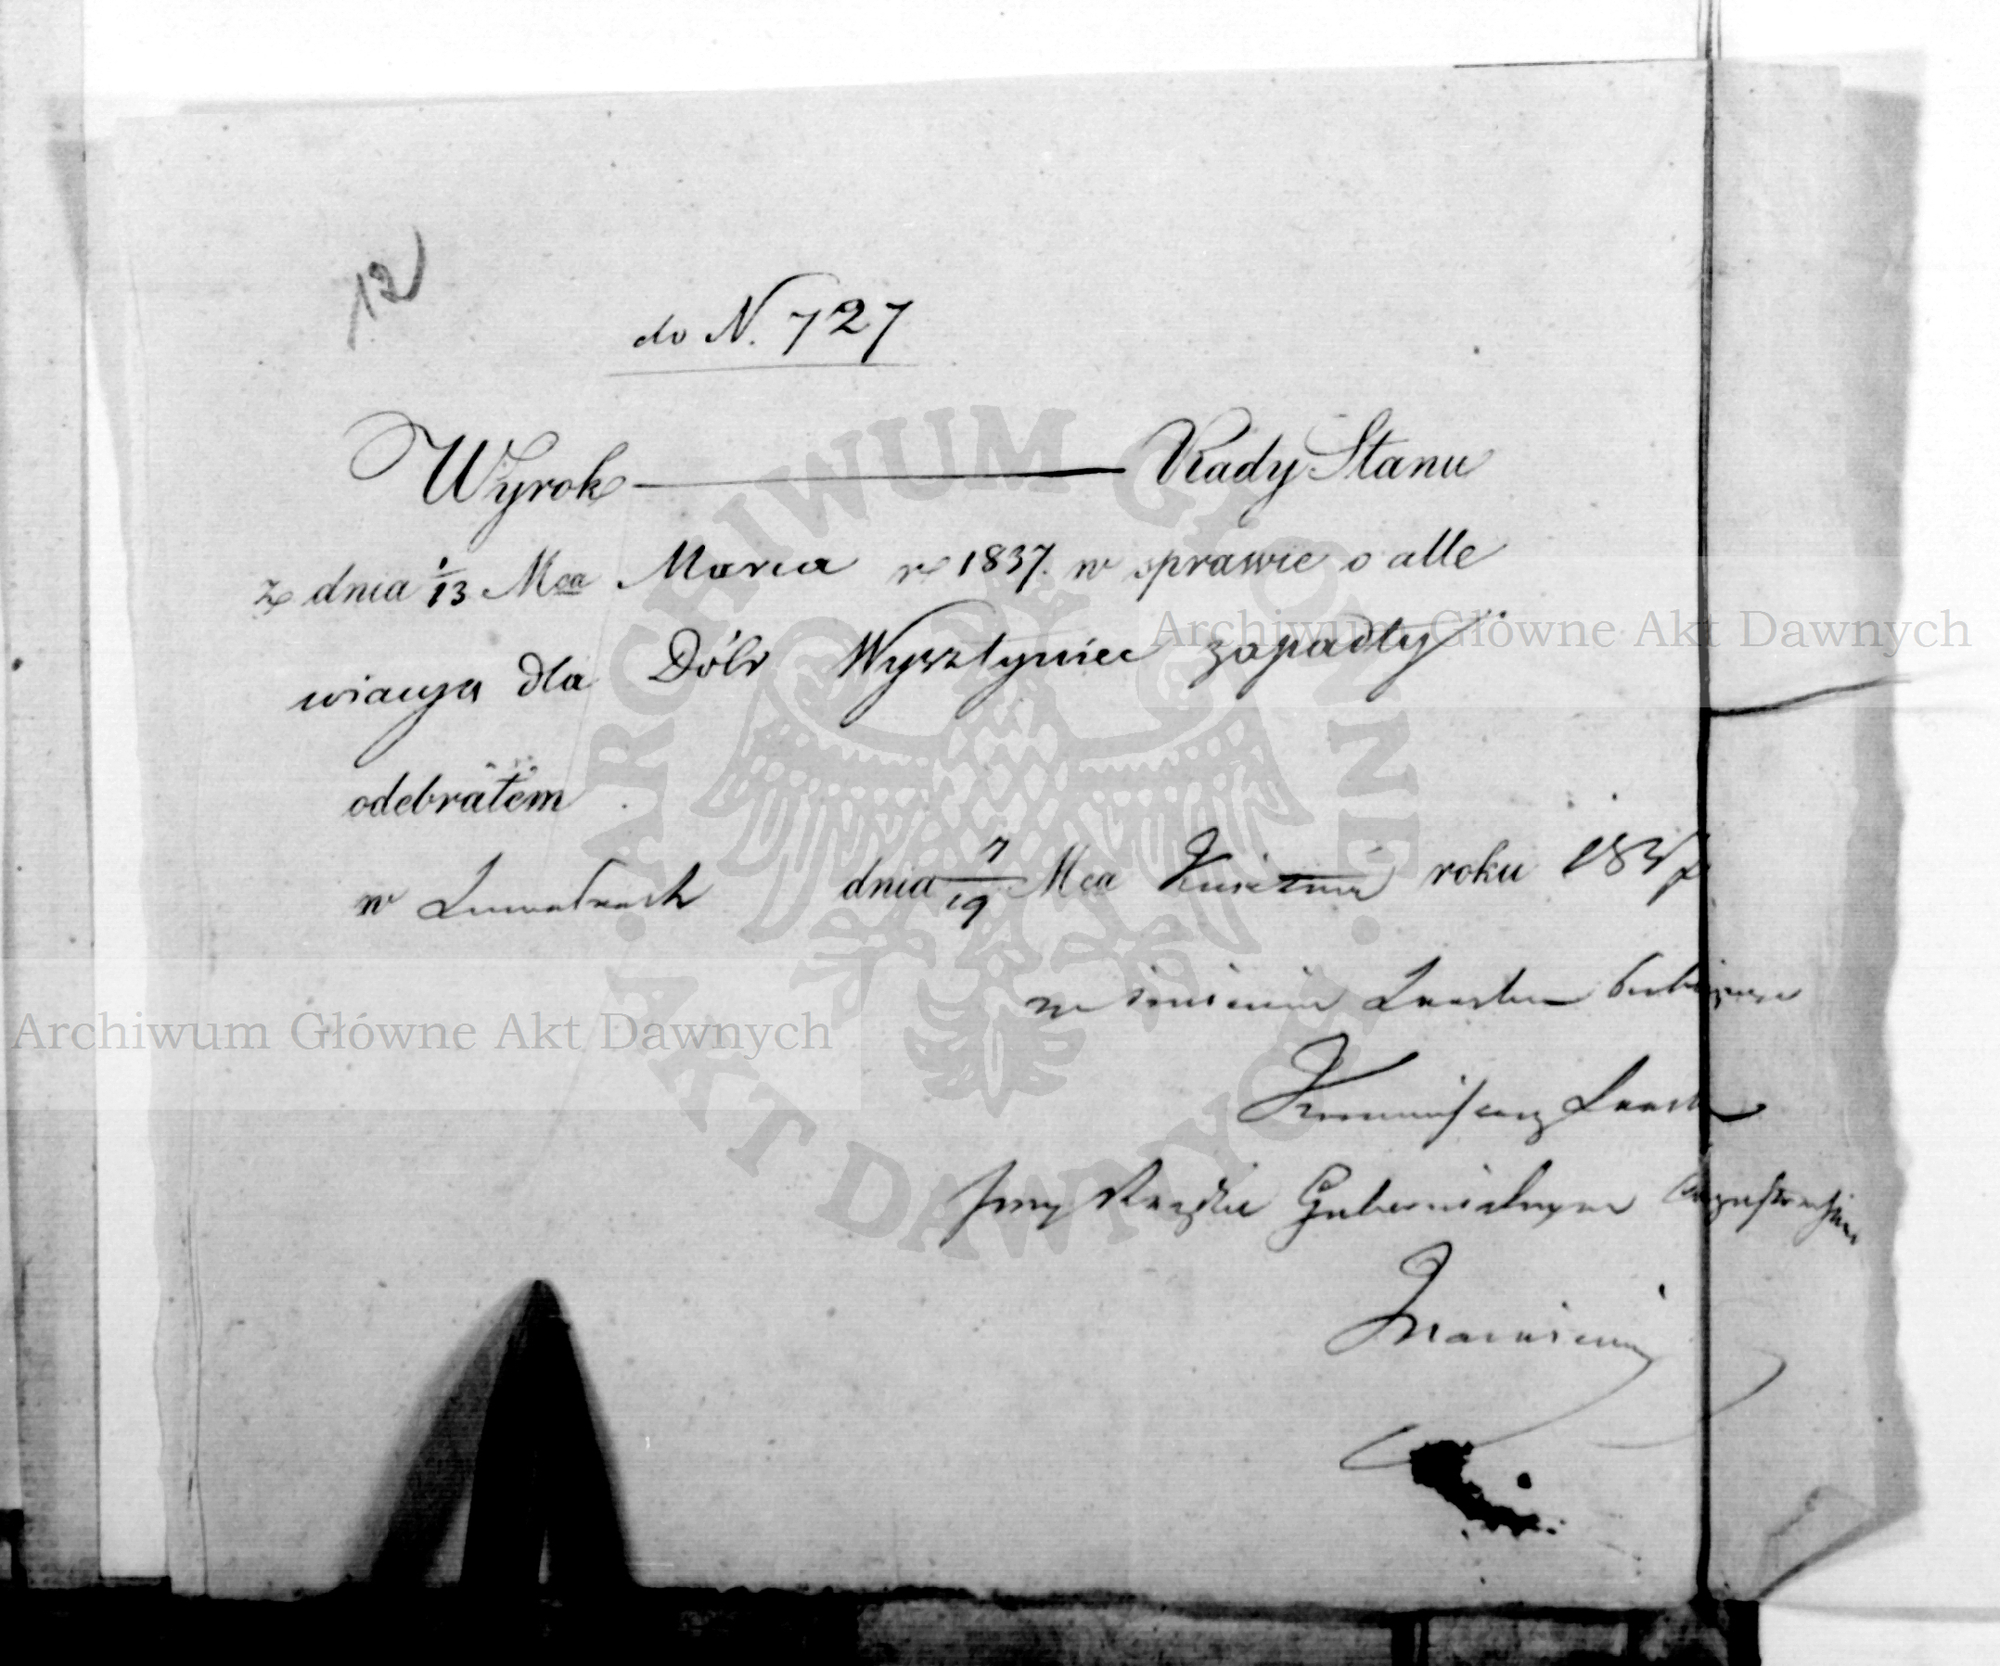 12
do N. 727
Wyrok — Rady Stanu
z dnia 1/13 Mca Marca r 1837. w sprawie o alle
wiacyą dla Dóbr Wysztyniec zapadły
odebrałem
w Suwałkach dnia 7/19 Mca Kwietnia roku 1837
w imieniu Skarbu
Kommissarz Skarb
przy Rządzie Gubernialnym Augustowskim
Archiwum Główne Akt Dawnych
Archiwum Główne Akt Dawnych
ARCHIWUM GŁÓWNE AKT DAWNYCH